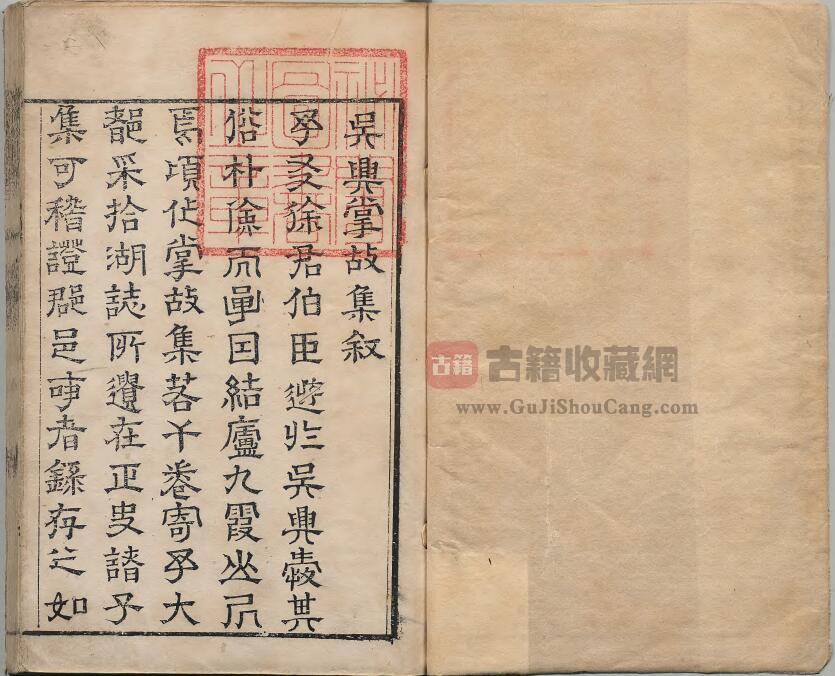 吳興掌故集叙
予友徐君伯臣遊於吳興愛其
俗朴儉囙結廬九霞山凥
焉頃作掌故集若干卷寄予大
都采拾湖誌所遺在正史諸子
集可稽證郡邑事者錄存之如
古籍
古籍收藏網
www.GuJiShouCang.com